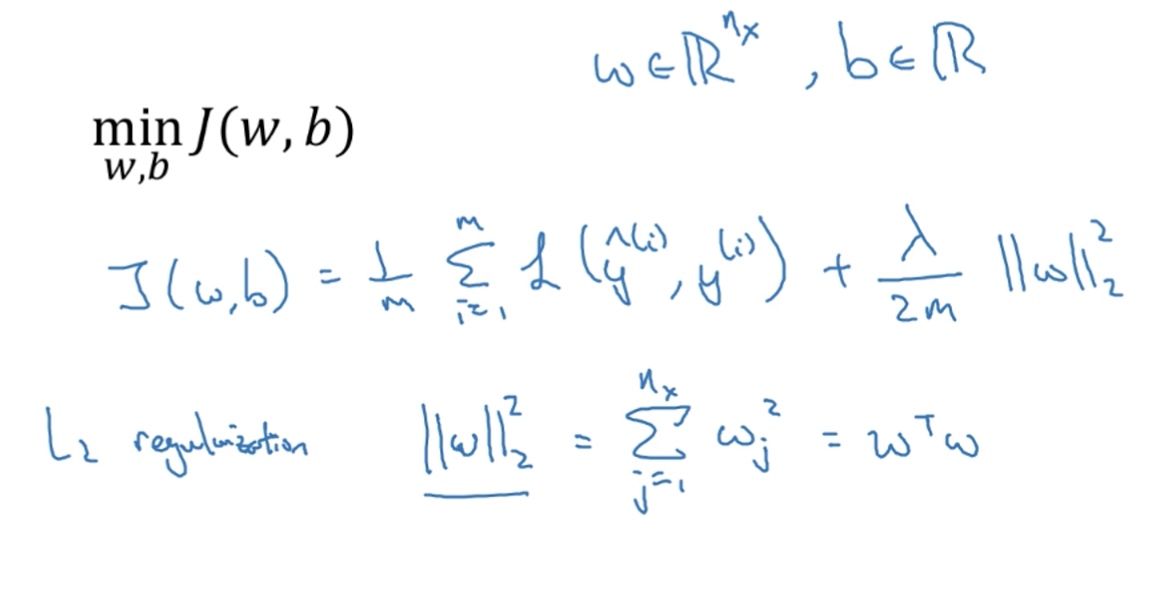 w ∈ ℝ^{n_x} , b ∈ ℝ
min_{w,b} J(w, b)
J(w,b) = 1/m Σ_{i=1}^{m} ℒ(ŷ^{(i)}, y^{(i)}) + λ/2m ||w||_2^2
L_2 regularization ||w||_2^2 = Σ_{j=1}^{n_x} w_j^2 = w^T w